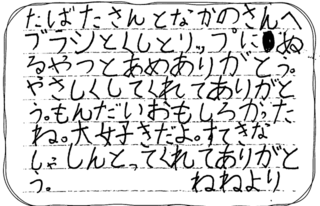 たばたさんとなかのさんへ
ブラシとくしとリップにぬ
るやつとあめありがとう。
やさしくしてくれてありがと
う。もんだいおもしろかった
ね。大好きだよ。すてきな
しゃしんとってくれてありがと
う。 ねねより